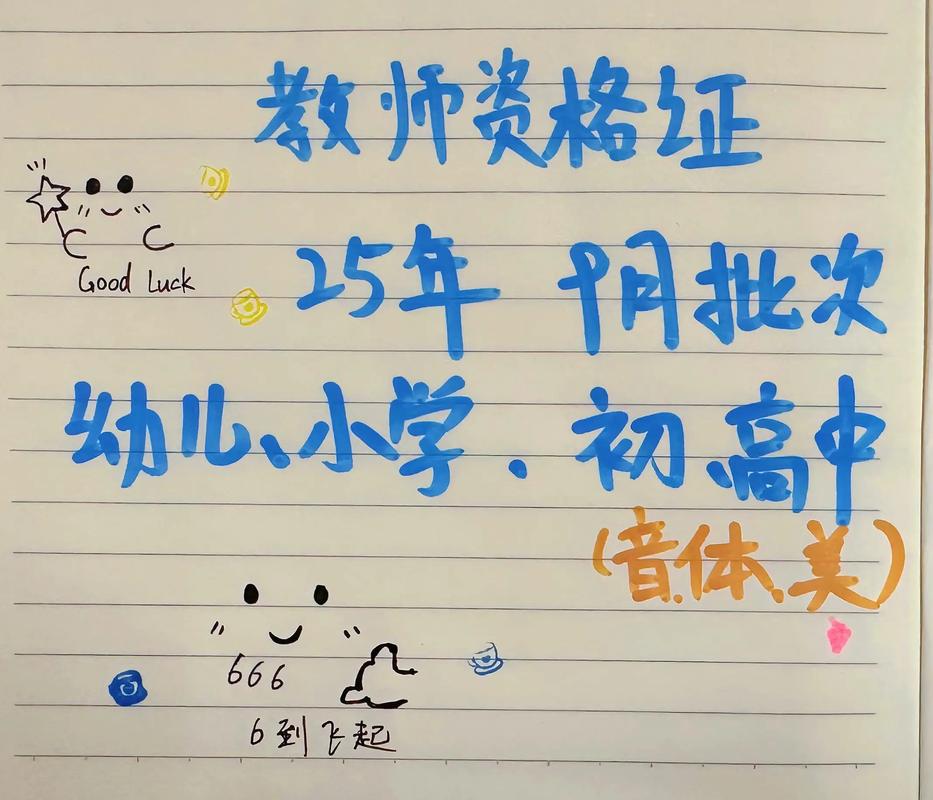 教师资格证
Good Luck
25年 9月批次
幼儿、小学、初、高中
(音、体、美)
666
6到飞起